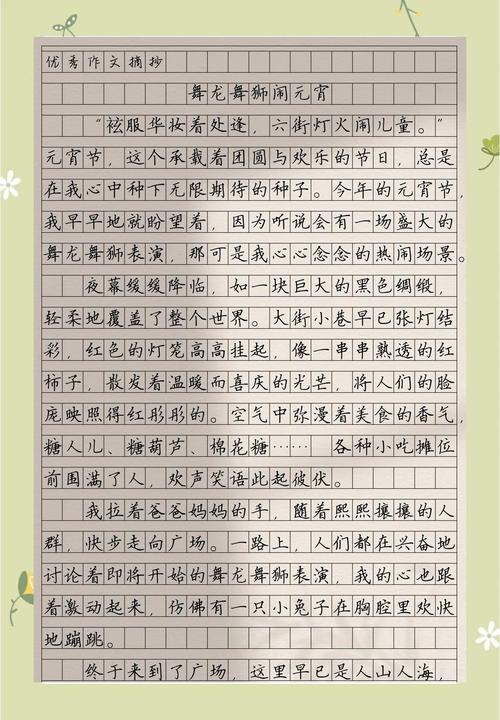 优秀作文摘抄
舞龙舞狮闹元宵
“袨服华妆着处逢，六街灯火闹儿童。”
元宵节，这个承载着团圆与欢乐的节日，总是
在我心中种下无限期待的种子。今年的元宵节，
我早早地就盼望着，因为听说会有一场盛大的
舞龙舞狮表演，那可是我心心念念的热闹场景。
夜幕缓缓降临，如一块巨大的黑色绸缎，
轻柔地覆盖了整个世界。大街小巷早已张灯结
彩，红色的灯笼高高挂起，像一串串熟透的红
柿子，散发着温暖而喜庆的光芒，将人们的脸
庞映照得红彤彤的。空气中弥漫着美食的香气，
糖人儿、糖葫芦、棉花糖…… 各种小吃摊位
前围满了人，欢声笑语此起彼伏。
我拉着爸爸妈妈的手，随着熙熙攘攘的人
群，快步走向广场。一路上，人们都在兴奋地
讨论着即将开始的舞龙舞狮表演，我的心也跟
着激动起来，仿佛有一只小兔子在胸腔里欢快
地蹦跳。
终于来到了广场，这里早已是人山人海，